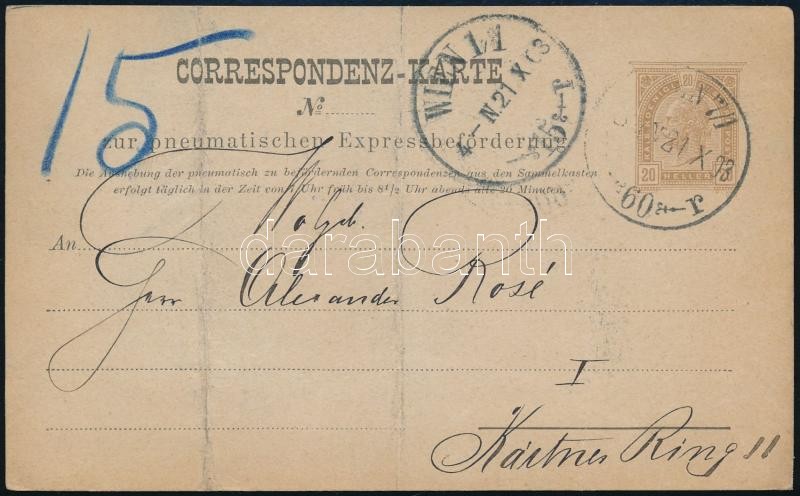 15
CORRESPONDENZ-KARTE
№
zur pneumatischen Expressbeförderung
Die Aushebung der pneumatisch zu befördernden Correspondenzen aus den Sammelkasten
erfolgt täglich in der Zeit von 7 Uhr früh bis 8½ Uhr abends alle 20 Minuten.
An Wolgeb.
Herr Alexander Rosé
I
Kärtner Ring 11
WIEN 1/1
21 X 03
20
20 HELLER 20
21 X 03
darabanth